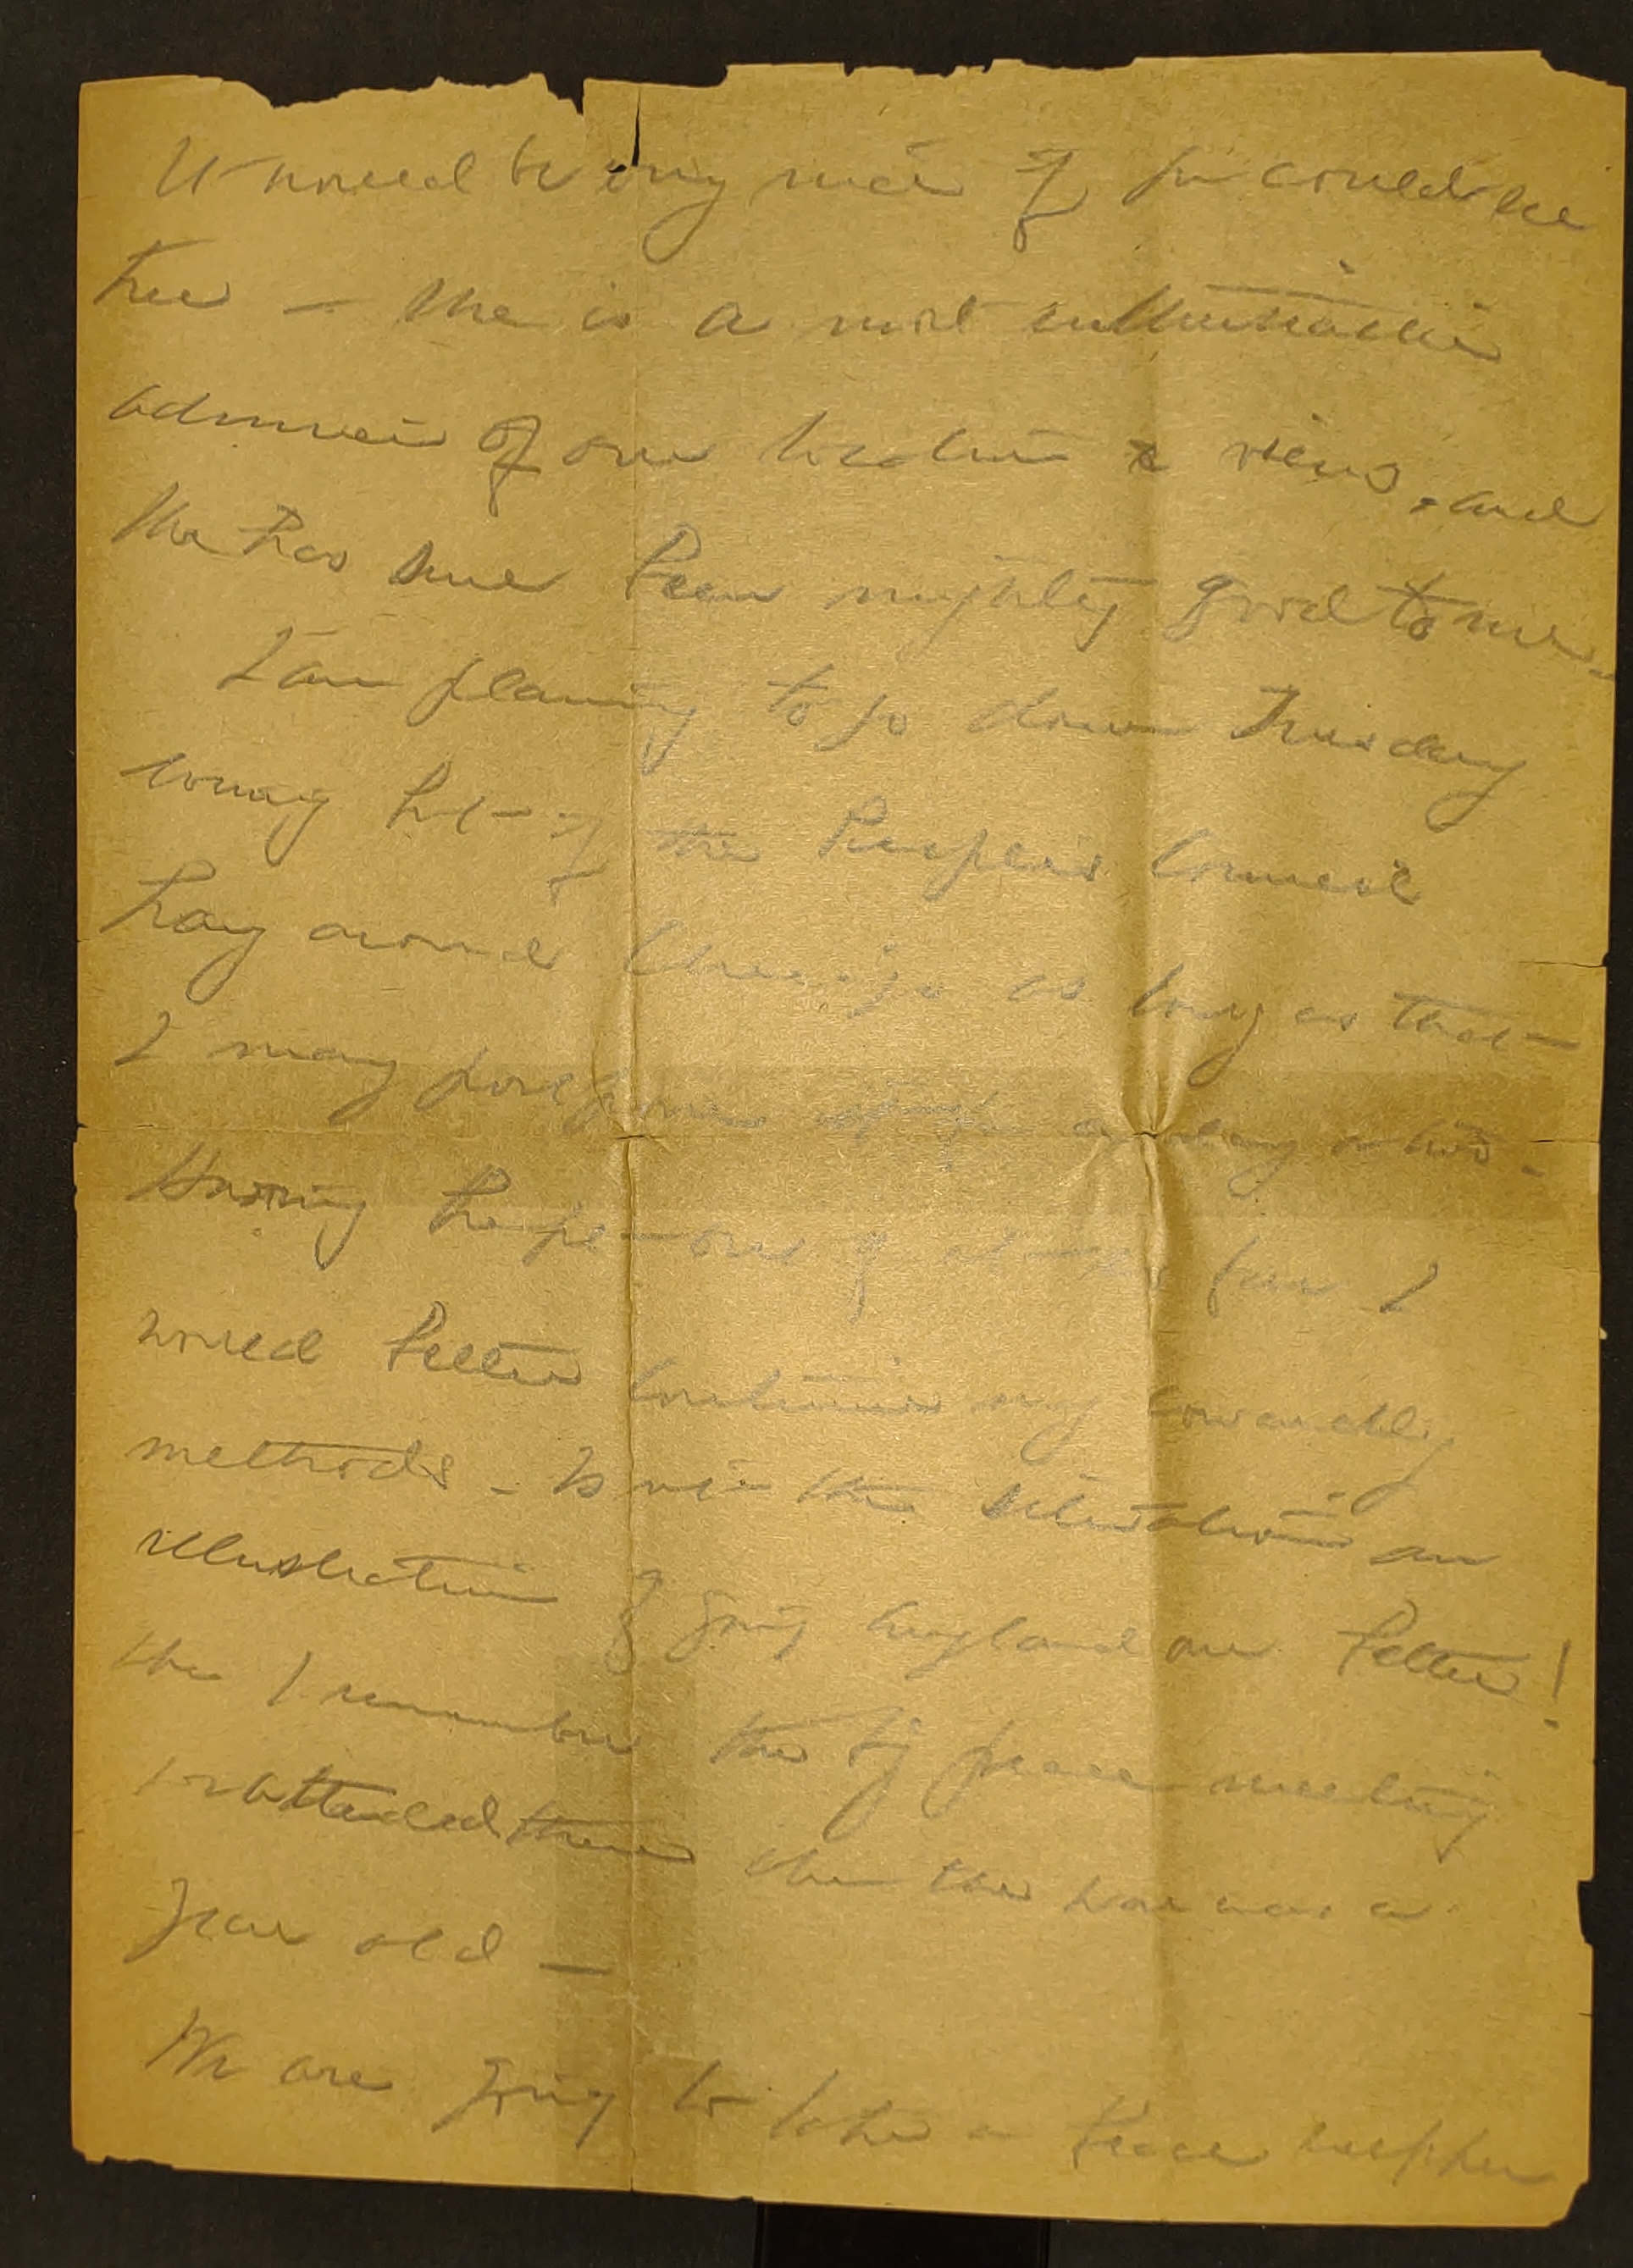 It would be very nice if you could see
her – She is a most enthusiastic
admirer of our & views, and
she has sure been mighty good to me –
I am planing to go down Tuesday
but – if the People's Council
hang around Chicago as long as that –
I may postpone a day or two –
Having out of I
would better continue my cowardly
methods – the situation an
illustration of going England one better!
She I remember the big peace meeting
I attended there when the war was a
year old –
We are going to take a